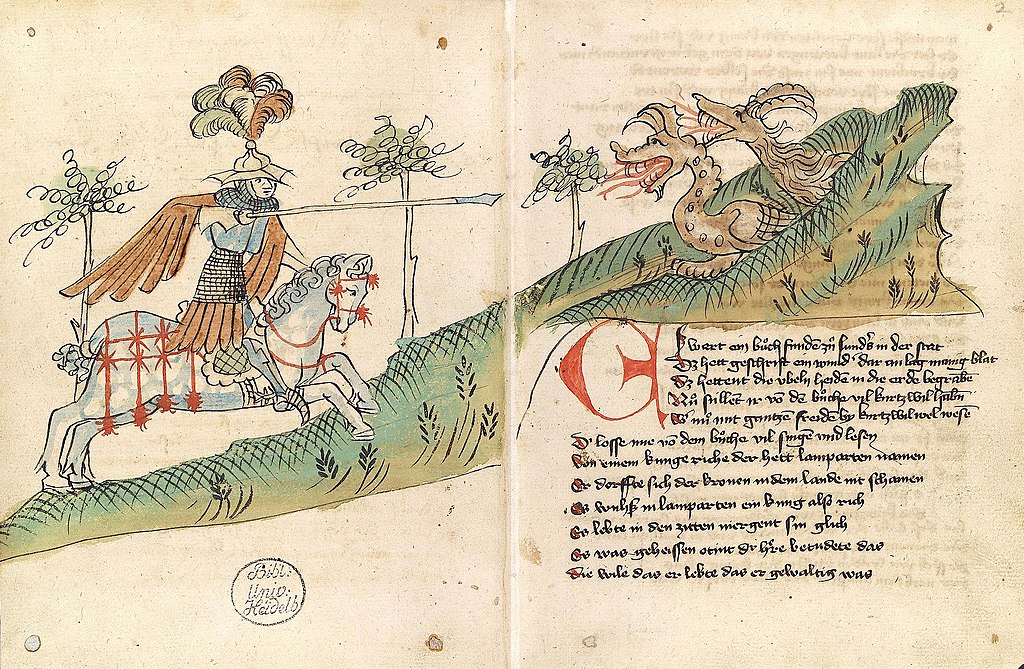 Bibl:
Univ:
Heidelb
2
ES wart ein bůch funden zů sunders in der stat
Dz hett geschrift ein wund' dar an lag manig blat
Dz hettent die ubeln heiden in die erde begraben
Nů sullen ir vō dē bůche vil kurtzwil habn
W' nů mit gantzen freiden by kurtzwil wel wesen
D' losse ime vō dem bůche vil singen und lesen
Von einem kunge riche der hett lamparten namen
Er dorffte sich der kronen in dem lande nit schamen
Es wuhß in lamparten ein kunig also rich
Es lebte in den ziten niergent sin glich
Er was geheissen otnit betudete das
Die wile das er lebte das er gewaltig was